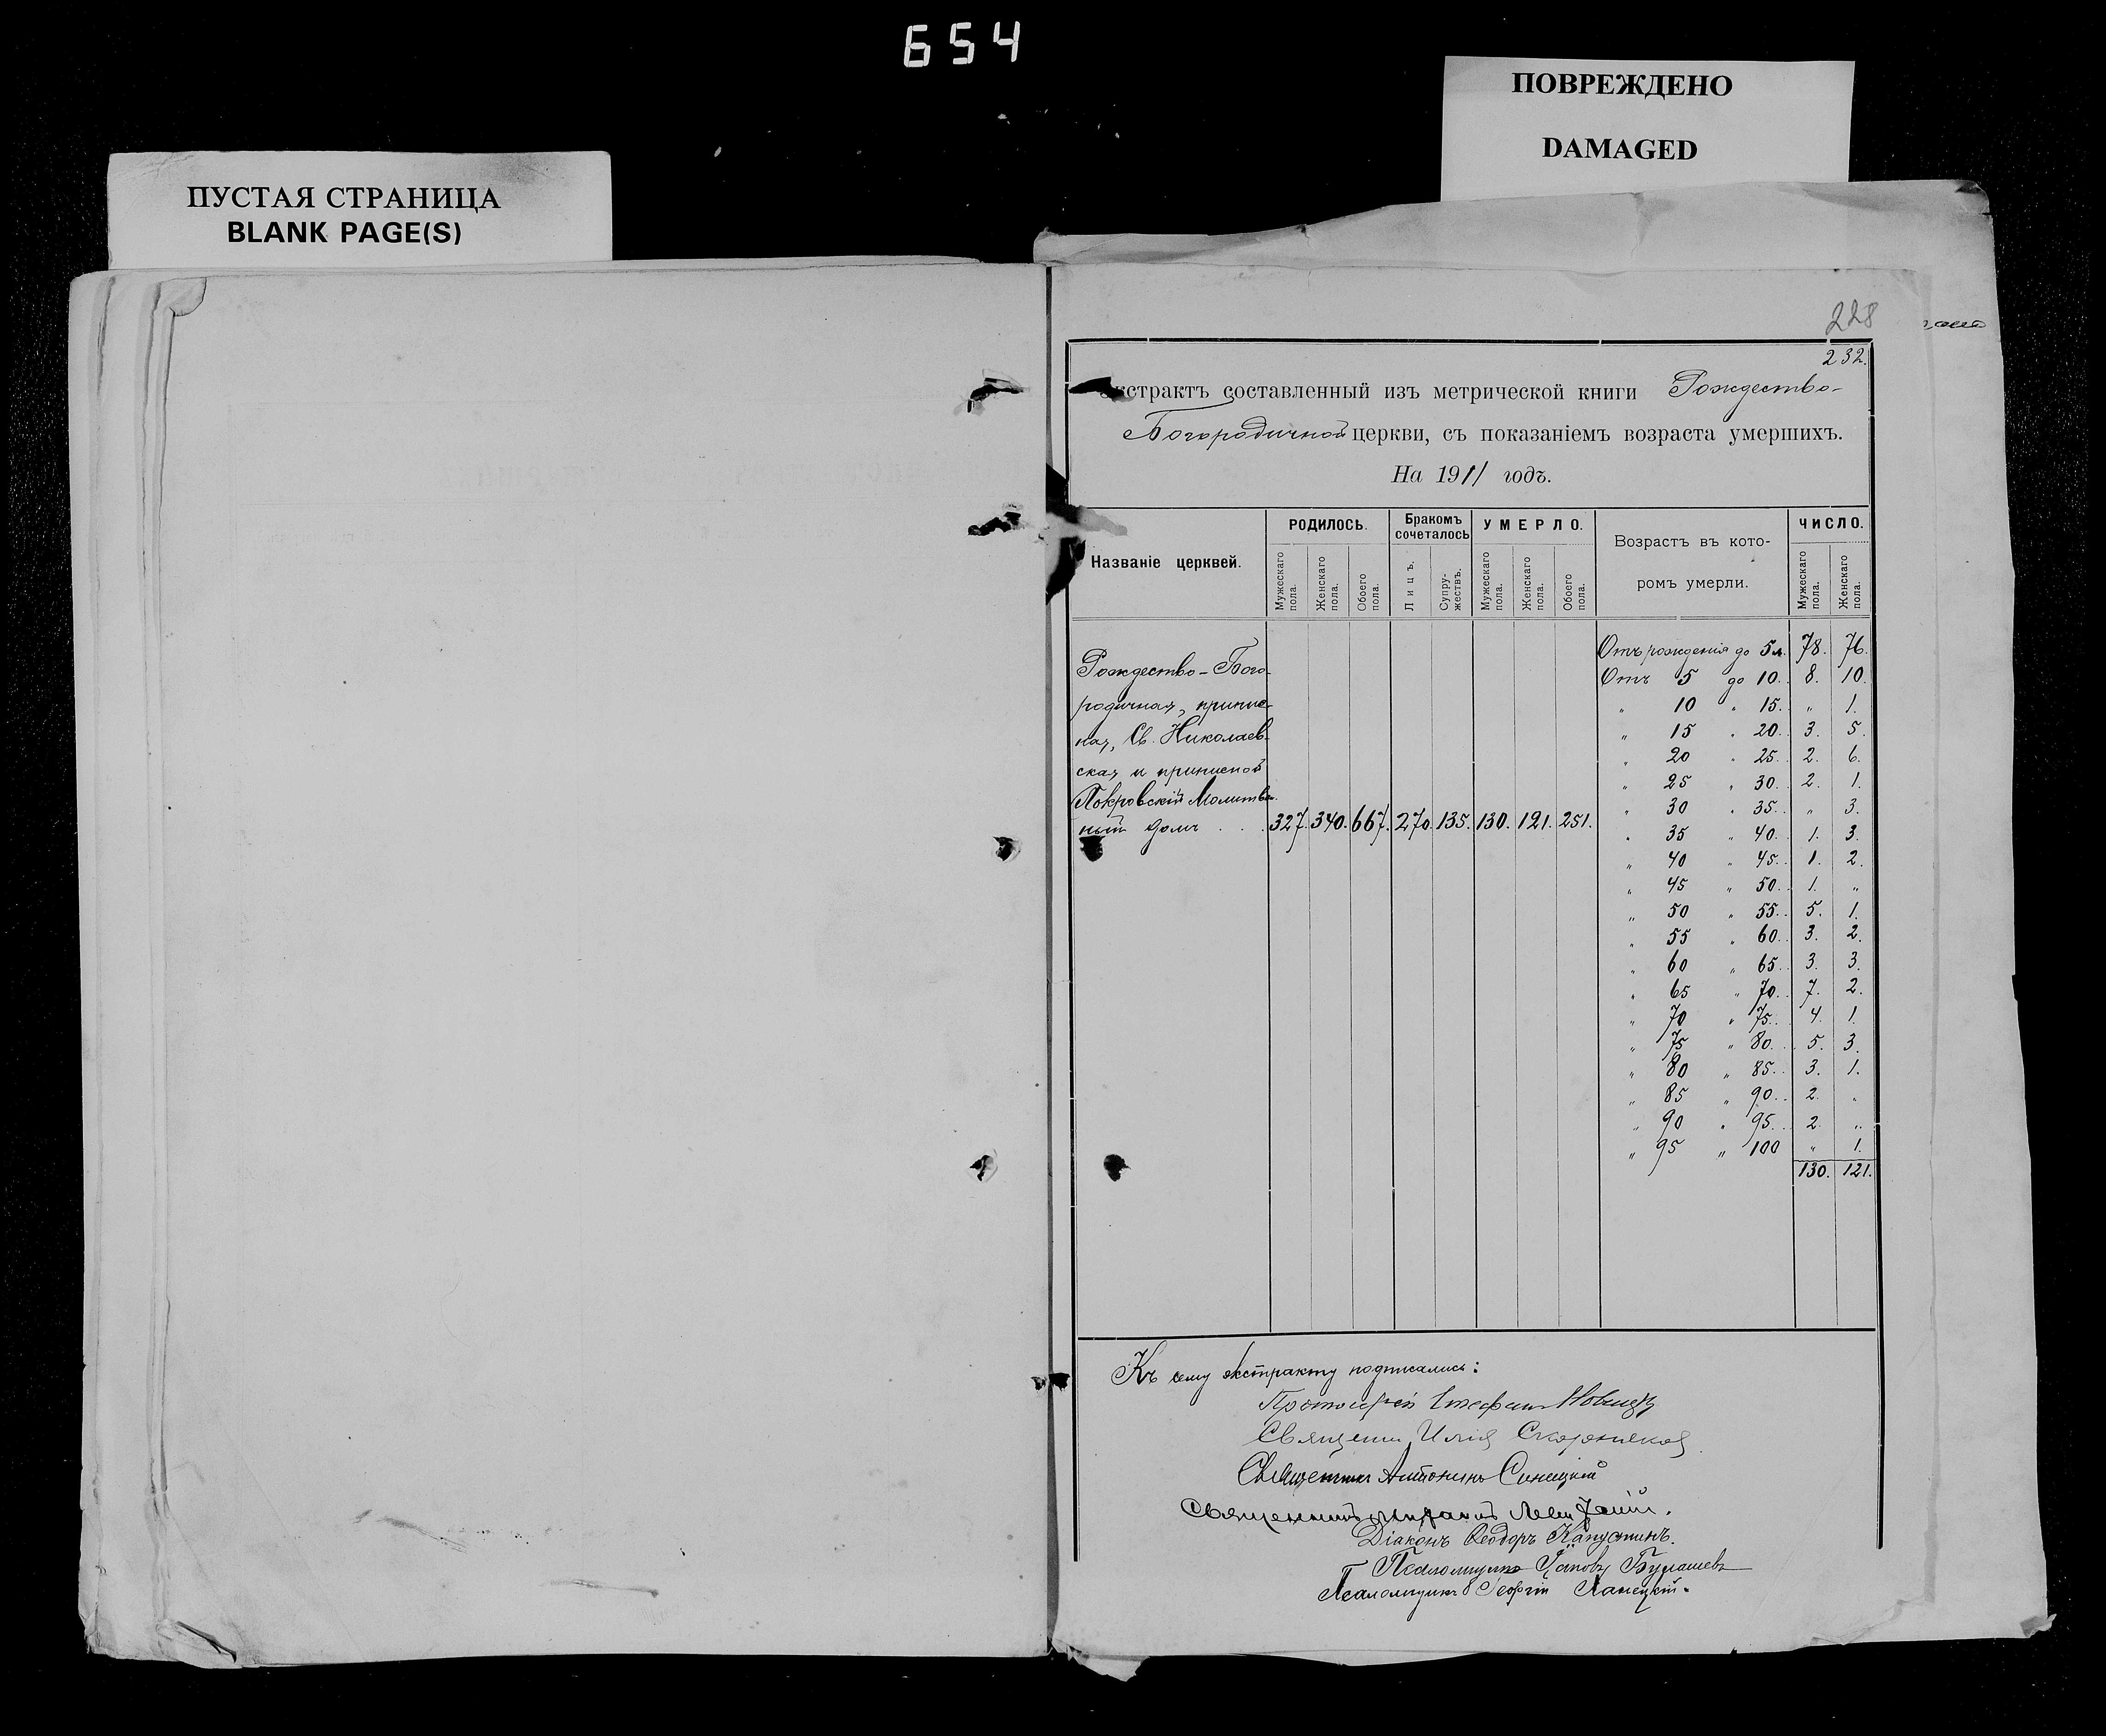 654
ПОВРЕЖДЕНО
DAMAGED
ПУСТАЯ СТРАНИЦА
BLANK PAGE(S)
228
232.
Экстрактъ составленный изъ метрической книги Рождество-
Богородичной церкви, съ показаніемъ возраста умершихъ.
На 1911 годъ.
Названіе церквей.
РОДИЛОСЬ.
Бракомъ сочеталось
УМЕРЛО.
Возрастъ въ кото-
ромъ умерли.
ЧИСЛО.
Мужескаго пола.
Женскаго пола.
Обоего пола.
Лицъ.
Супру-жествъ.
Мужескаго пола.
Женскаго пола.
Обоего пола.
Мужескаго пола.
Женскаго пола.
Рождество-Бого-
родичная, припис-
ная, Св. Николаев-
ская и приписной
Покровскій Молитвен-
ный домъ . . . 327. 340. 667. 270. 135. 130. 121. 251.
Отъ рожденія до 5 л. 78. 76.
Отъ 5 до 10. 8. 10.
" 10 " 15. " 1.
" 15 " 20. 3. 5.
" 20 " 25. 2. 6.
" 25 " 30. 2. 1.
" 30 " 35. " 3.
" 35 " 40. 1. 3.
" 40 " 45. 1. 2.
" 45 " 50. 1. "
" 50 " 55. 5. 1.
" 55 " 60. 3. 2.
" 60 " 65. 3. 3.
" 65 " 70. 7. 2.
" 70 " 75. 4. 1.
" 75 " 80. 5. 3.
" 80 " 85. 3. 1.
" 85 " 90. 2. "
" 90 " 95. 2. "
" 95 " 100 " 1.
130. 121.
Къ сему экстракту подписались:
Протоіерей Стефанъ Новицкій
Священ. Илія
Священникъ Антонинъ Синицкій
Священникъ
Діаконъ Ѳеодоръ Капустинъ.
Псаломщикъ Іаковъ
Псаломщикъ Георгій